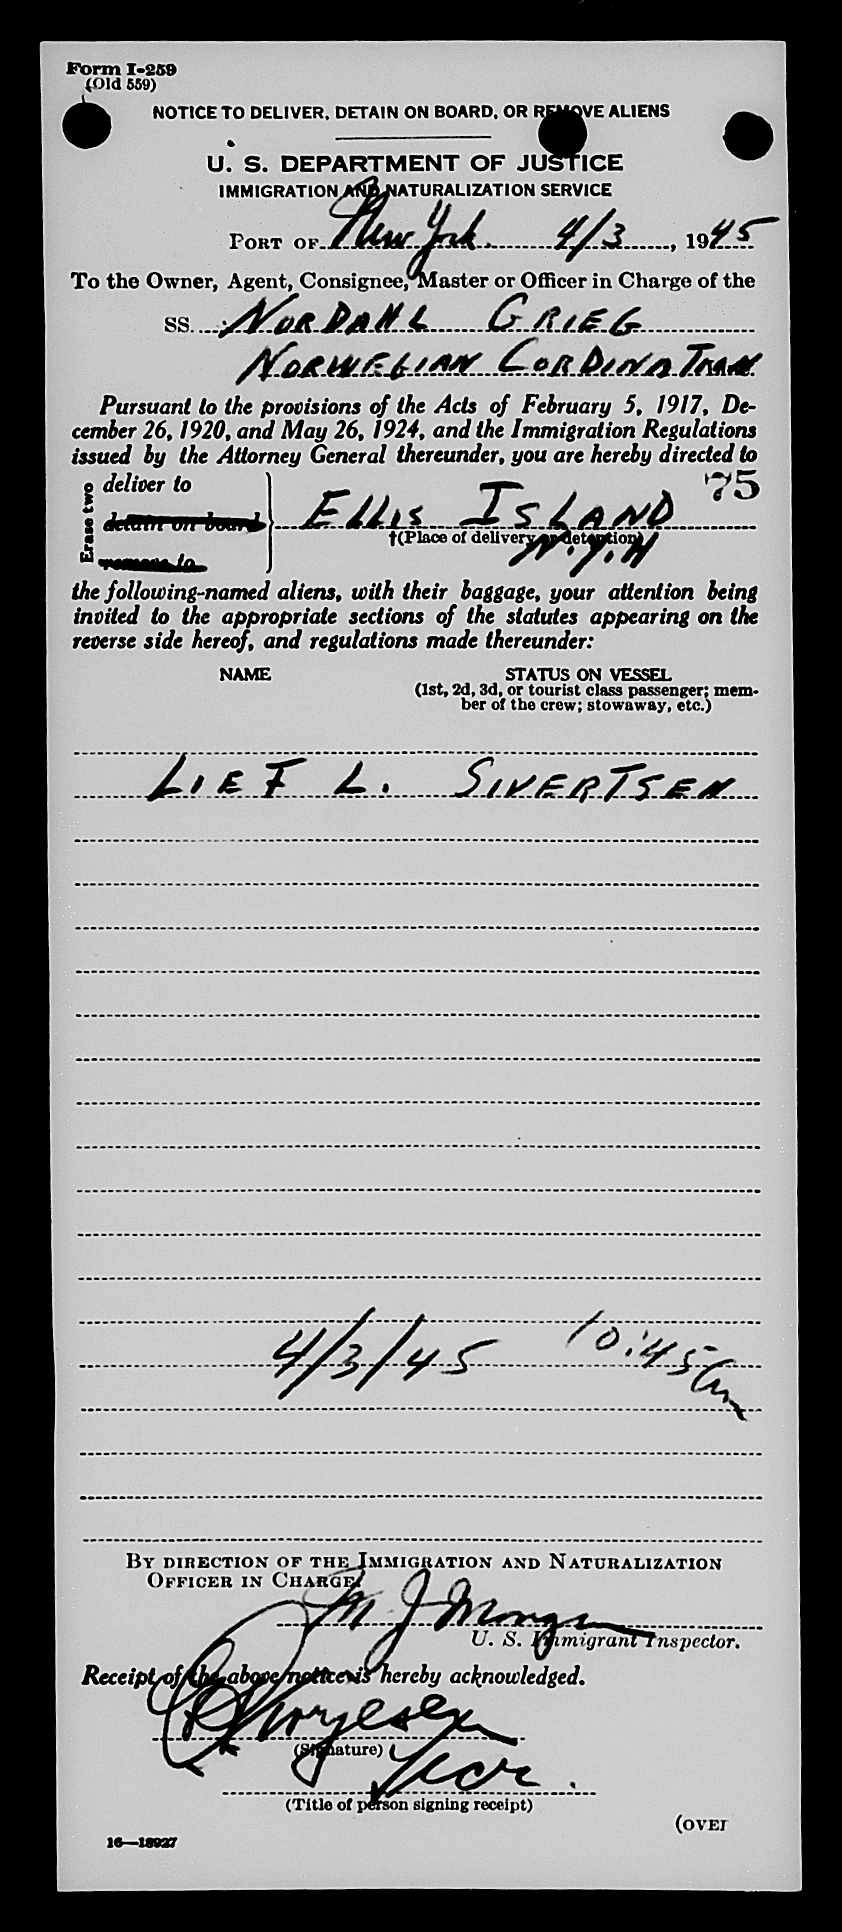 Form I-259
(Old 559)
NOTICE TO DELIVER, DETAIN ON BOARD, OR REMOVE ALIENS
U. S. DEPARTMENT OF JUSTICE
IMMIGRATION AND NATURALIZATION SERVICE
PORT OF New York 4/3, 1945
To the Owner, Agent, Consignee, Master or Officer in Charge of the
SS. NORDAHL GRIEG
NORWEGIAN
Pursuant to the provisions of the Acts of February 5, 1917, De-
cember 26, 1920, and May 26, 1924, and the Immigration Regulations
issued by the Attorney General thereunder, you are hereby directed to
75
Erase two
deliver to
detain on board
remove to
ELLIS ISLAND
†(Place of delivery or detention)
N.Y.H
the following-named aliens, with their baggage, your attention being
invited to the appropriate sections of the statutes appearing on the
reverse side hereof, and regulations made thereunder:
NAME STATUS ON VESSEL
(1st, 2d, 3d, or tourist class passenger; mem-
ber of the crew; stowaway, etc.)
LIEF L. SIVERTSEN
4/3/45 10:45 am
BY DIRECTION OF THE IMMIGRATION AND NATURALIZATION
OFFICER IN CHARGE,
M J
U. S. Immigrant Inspector.
Receipt of the above notice is hereby acknowledged.
(Signature)
(Title of person signing receipt)
(OVER
16—18927